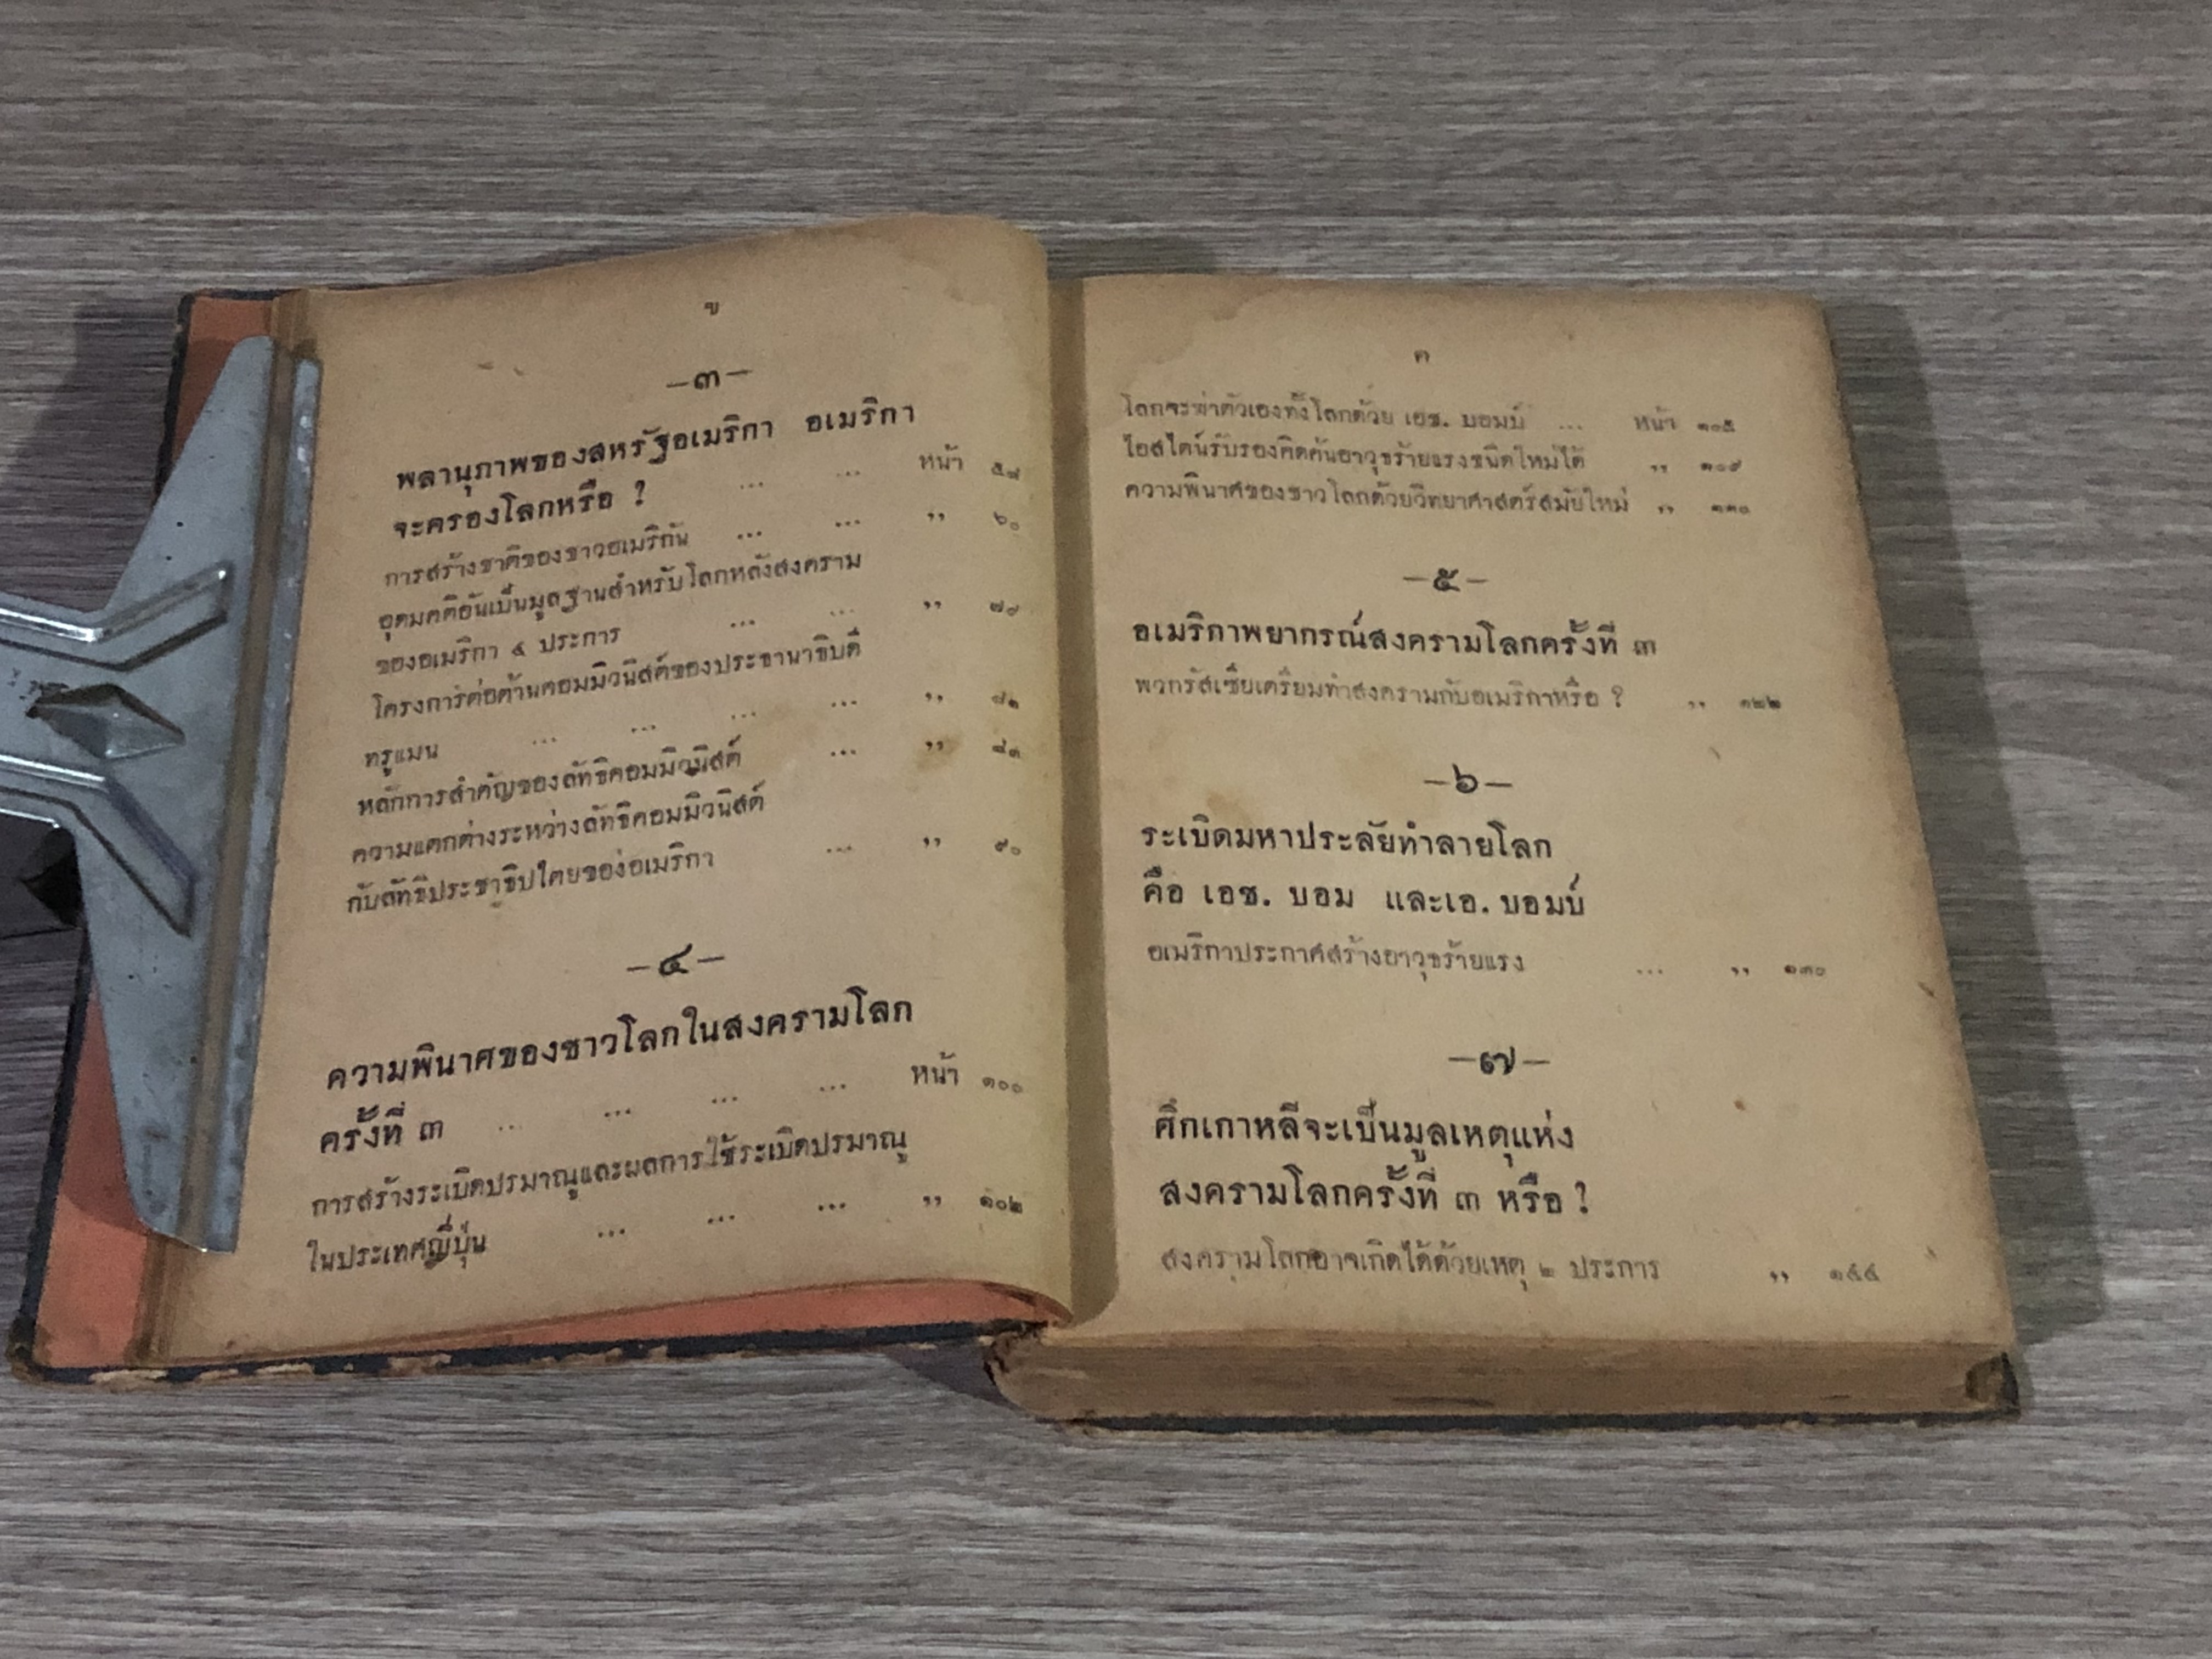 ข
—๓—
พลานุภาพของสหรัฐอเมริกา อเมริกา
จะครองโลกหรือ ? ... ... หน้า
การสร้างชาติของชาวอเมริกัน ... ... ,, ๖๐
อุดมคติอันเป็นมูลฐานสำหรับโลกหลังสงคราม
ของอเมริกา ๔ ประการ ... ... ,, ๗๙
โครงการต่อต้านคอมมิวนิสต์ของประธานาธิบดี
ทรูแมน ... ... ... ... ,, ๘๑
หลักการสำคัญของลัทธิคอมมิวนิสต์ ... ,,
ความแตกต่างระหว่างลัทธิคอมมิวนิสต์
กับลัทธิประชาธิปไตยของอเมริกา ... ,, ๙๐
—๔—
ความพินาศของชาวโลกในสงครามโลก
ครั้งที่ ๓ ... ... ... ... หน้า ๑๐๐
การสร้างระเบิดปรมาณูและผลการใช้ระเบิดปรมาณู
ในประเทศญี่ปุ่น ... ... ... ,, ๑๐๒
ค
โลกจะฆ่าตัวเองทั้งโลกด้วย เอช. บอมบ์ ... หน้า ๑๐๕
ไอสไตน์รับรองคิดค้นอาวุธร้ายแรงชนิดใหม่ได้ ,, ๑๐๙
ความพินาศของชาวโลกด้วยวิทยาศาสตร์สมัยใหม่ ,,
—๕—
อเมริกาพยากรณ์สงครามโลกครั้งที่ ๓
พวกรัสเซียเตรียมทำสงครามกับอเมริกาหรือ ? ,, ๑๒๒
—๖—
ระเบิดมหาประลัยทำลายโลก
คือ เอช. บอม และเอ. บอมบ์
อเมริกาประกาศสร้างอาวุธร้ายแรง ... ,, ๑๓๐
—๗—
ศึกเกาหลีจะเป็นมูลเหตุแห่ง
สงครามโลกครั้งที่ ๓ หรือ ?
สงครามโลกอาจเกิดได้ด้วยเหตุ ๒ ประการ ,,